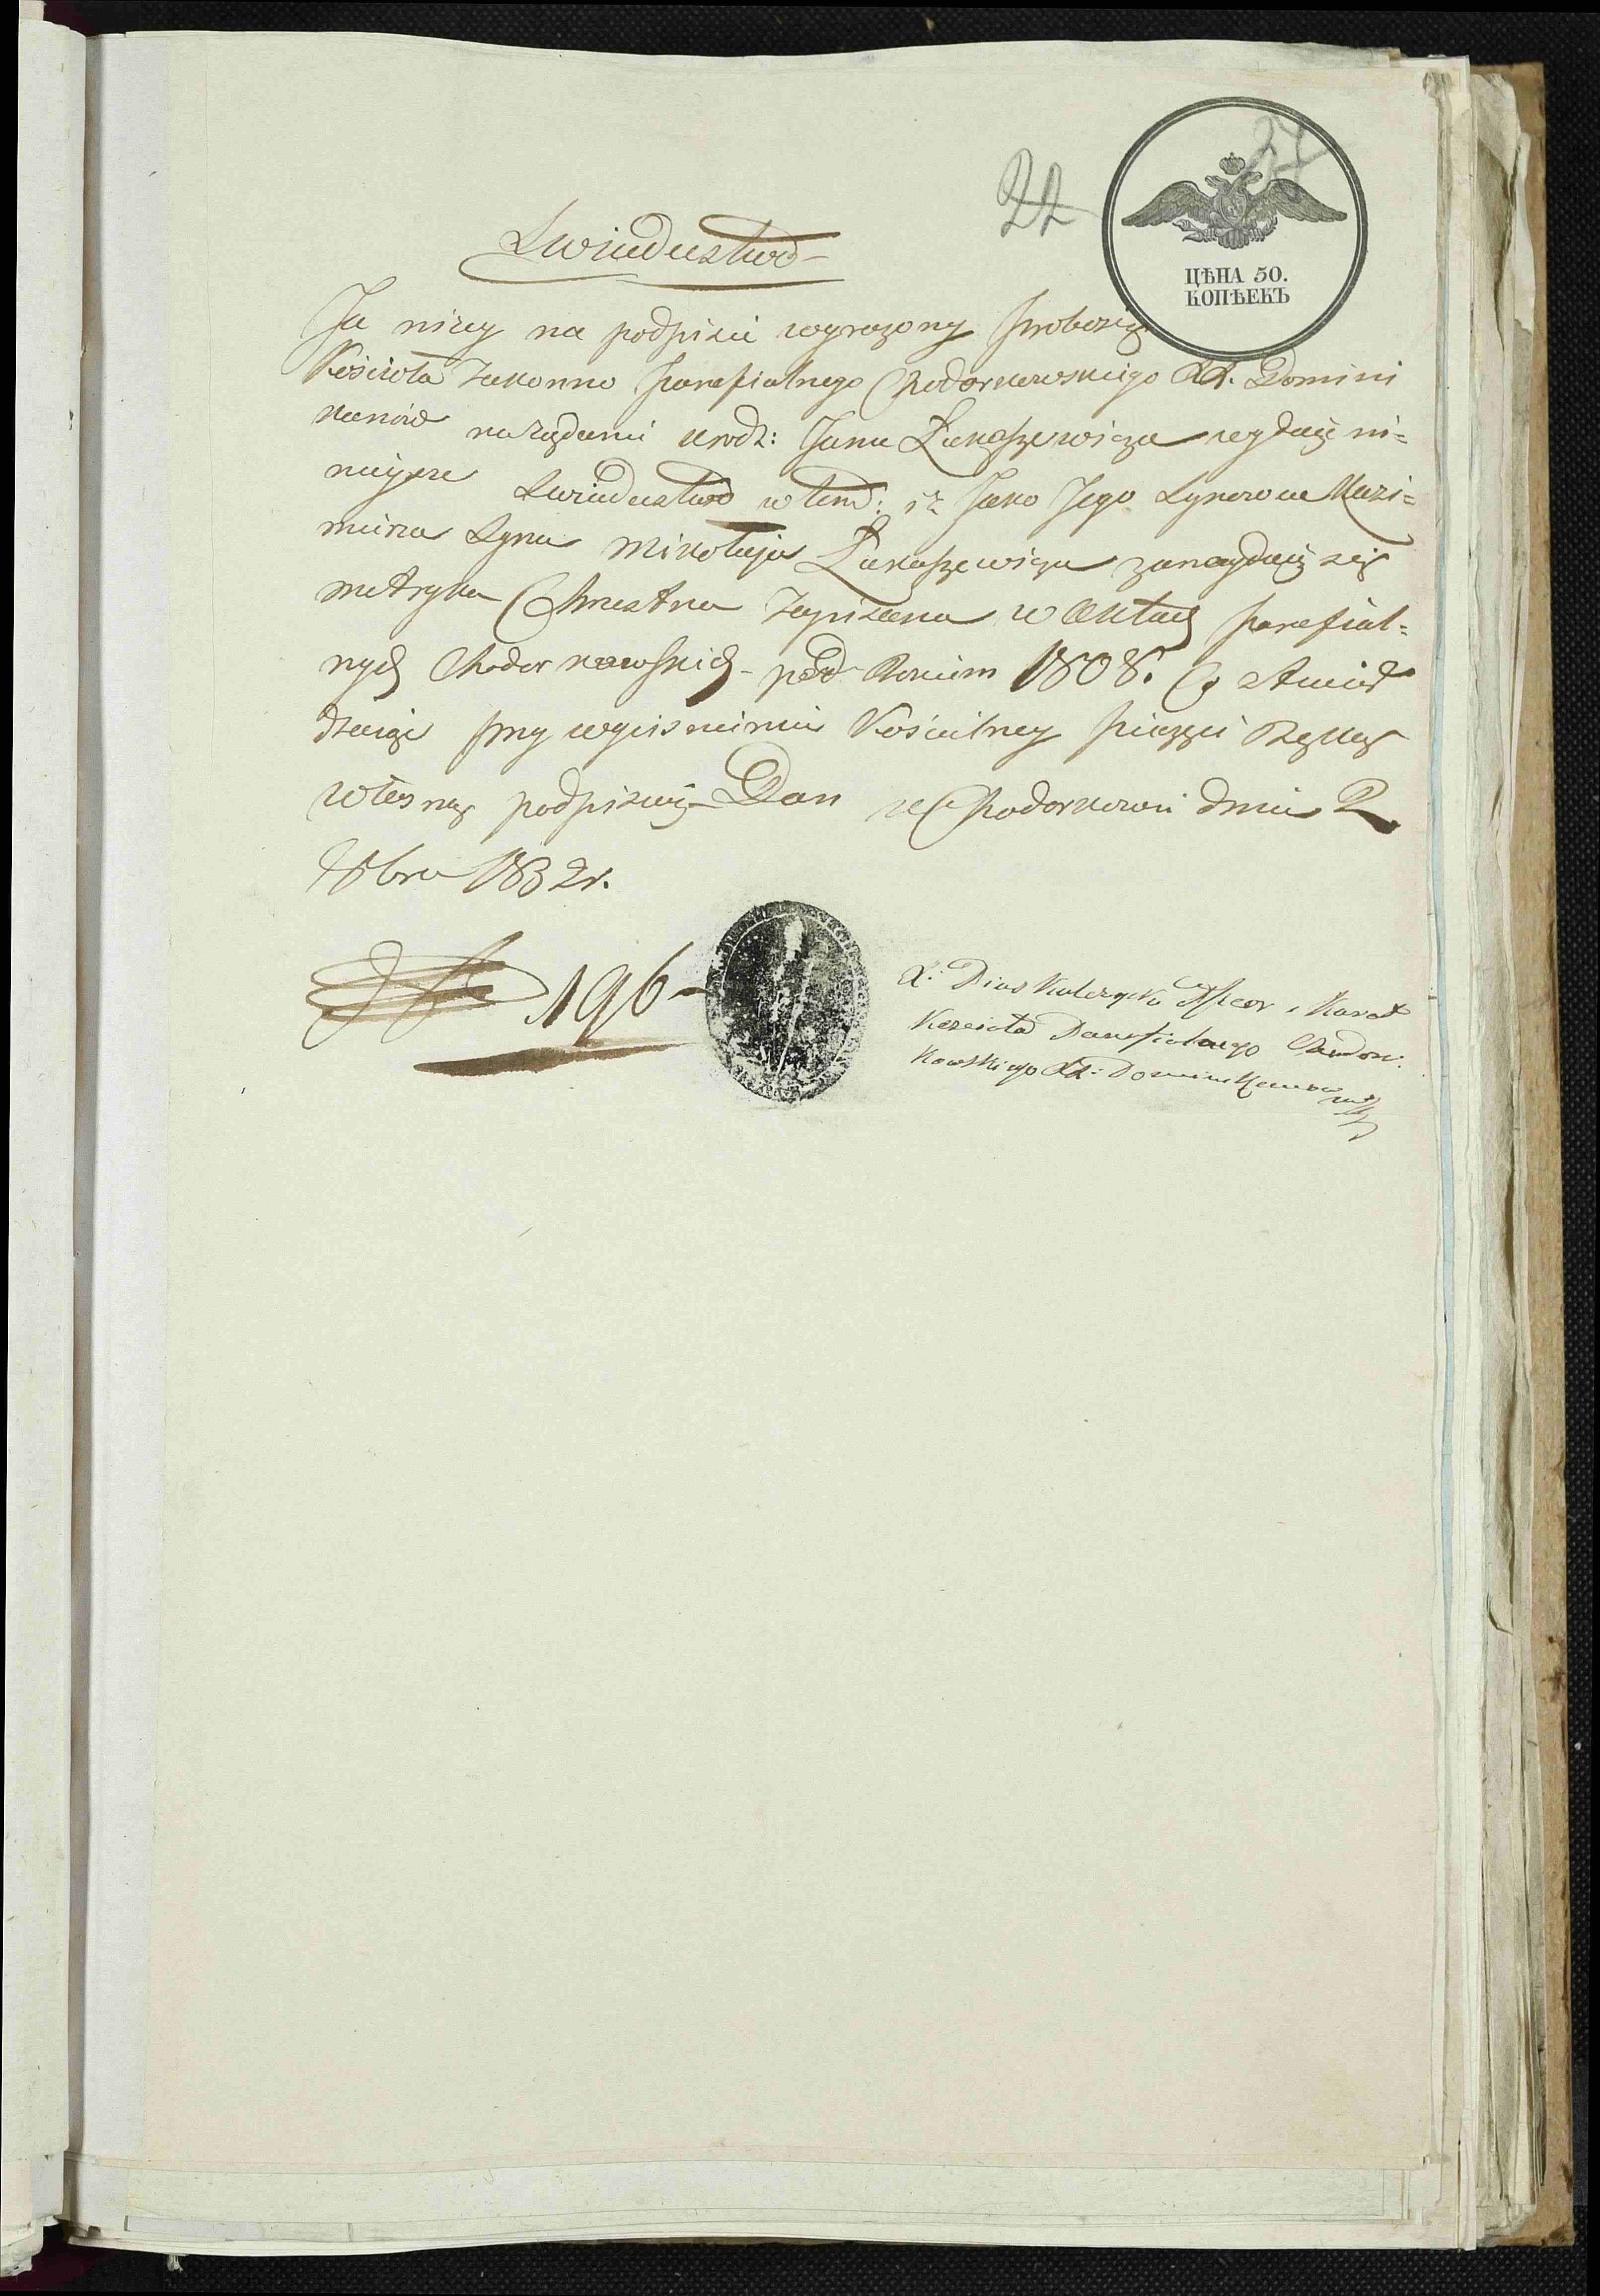 22
27
ЦѢНА 50.
КОПѢЕКЪ
Swiadectwo
Ja niżey na podpisie wyrażony Proboszcz
Kościoła Zakonno Parafialnego Chodorkowskiego XX. Domini
kanów na żądanie urodz: Jana Łukaszewicza wydaię ni=
nieysze Swiadectwo w tem: iż Jako Jego Synowca Kazi=
mierza Syna Mikołaja Łukaszewicza znayduię się
metryka Chrestna zapisana w Aktach parafial=
nych Chodorkowskich pod Rokiem 1808. Co stwier
dzaiąc przy wyciśnieniu Kościelney pieczęci Ręką
własną podpisuię Dan w Chodorkowie dnia 2
1832r.
196
X: Pius Kulczycki Przeor i Kurat
Koscioła Parafialnego Chodor:
kowskiego XX: Dominikanow
mp